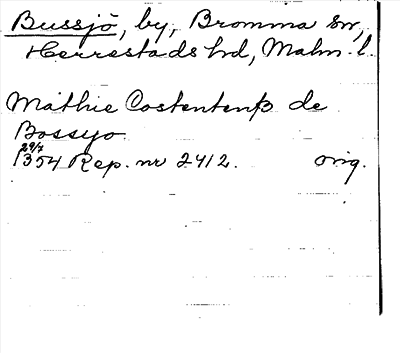 Bussjö, by, Bromma sn,
Herrestads hd, Malm. l.
Mathie Costentenß de
Bossyo
29/7
1354 Rep. nr 2412. orig.